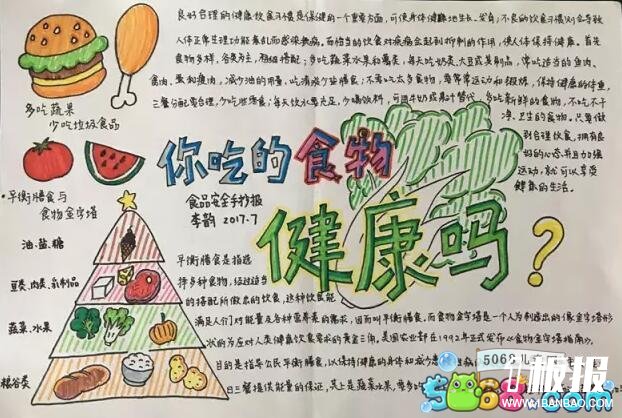 良好合理的健康饮食习惯是保健的一个重要方面,可使身体健康地生长、发育;不良的饮食习惯则会导致
人体正常生理功能紊乱而感染疾病。而恰当的饮食对疾病会起到抑制的作用,使人体保持健康。首先
食物多样,谷类为主,粗细搭配;多吃蔬菜水果和薯类,每天吃奶类、大豆或其制品,常吃适当的鱼肉、
禽肉、蛋和瘦肉,减少油的用量,吃清淡少盐膳食;不要吃太多食物,要常常运动和锻炼,保持健康的体重,
三餐分配要合理,少吃些零食;每天饮水要充足,少喝饮料,可用牛奶或果汁替代,多吃新鲜的食物,不吃不干
净、卫生的食物。只要做
到合理饮食,拥有良
好的心态并且加强
运动,就可以享受
健康的生活。
多吃蔬果
少吃垃圾食品
你吃的食物
健康吗?
食品安全手抄报
李韵 2017.7
平衡膳食与
食物金字塔
油、盐、糖
豆类、肉类、乳制品
蔬菜、水果
粮谷类
平衡膳食是指选
择多种食物,经过适当
的搭配所做出的饮食,这种饮食能
满足人们对能量及各种营养素的需求,因而叫平衡膳食。而食物金字塔是一个为制造出的像金字塔形
状的为应对人类健康饮食要求的黄金三角,美国农业部在1992年正式发布以食物金字塔指南
目的是指导公民平衡膳食,以保持健康的身体和减少
日三餐提供能量的保证,其上是蔬菜水果,要多吃
5068儿童
5068.com
板报
1BANBAO.COM